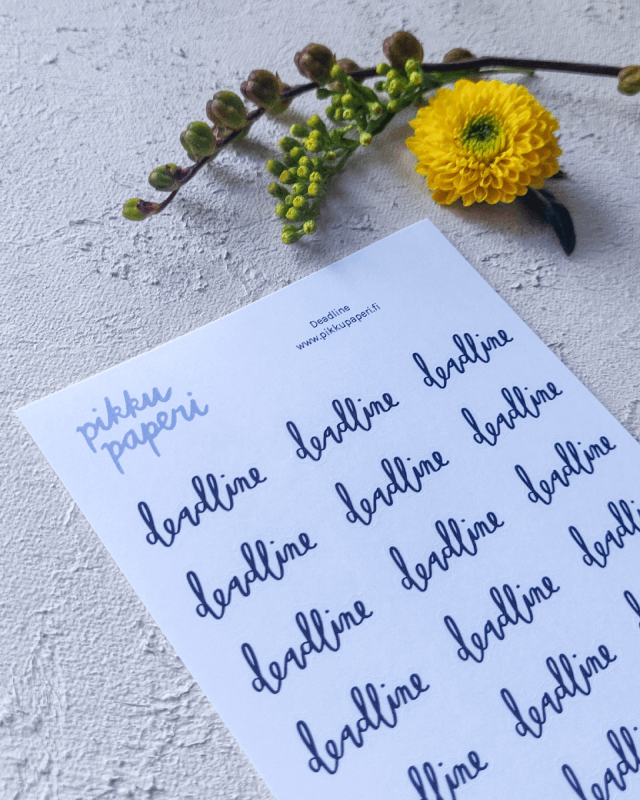 Deadline
www.pikkupaperi.fi
pikku
paperi
deadline deadline deadline
deadline deadline deadline
deadline deadline deadline
deadline deadline
deadline deadline